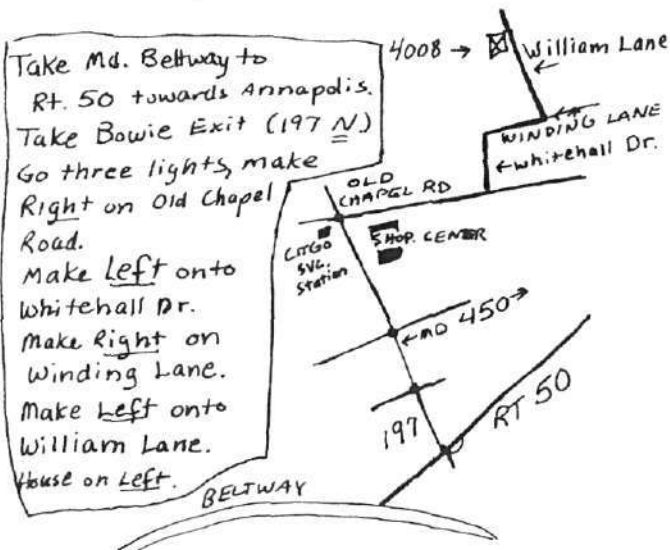 Take Md. Beltway to
Rt. 50 towards Annapolis.
Take Bowie Exit (197 N)
Go three lights, make
Right on Old Chapel
Road.
Make Left onto
Whitehall Dr.
Make Right on
Winding Lane.
Make Left onto
William Lane.
House on Left.
4008 →
William Lane
←
←
WINDING LANE
← Whitehall Dr.
OLD
CHAPEL RD
CITGO
SVC.
Station
SHOP. CENTER
← MD 450 →
197
RT 50
BELTWAY